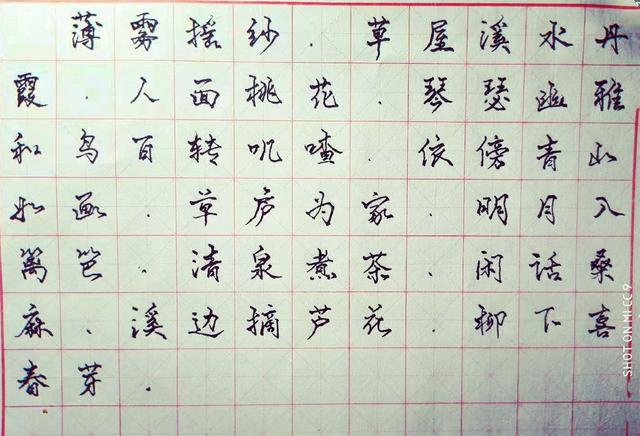 薄雾摇纱.草屋溪水丹
霞.人面桃花.琴瑟幽雅
和鸟百转叽喳.依傍青山
如画.草庐为家.明月入
篱笆.清泉煮茶.闲话桑
麻.溪边摘芦花.柳下喜
春芽.
SHOT ON MI CC 9